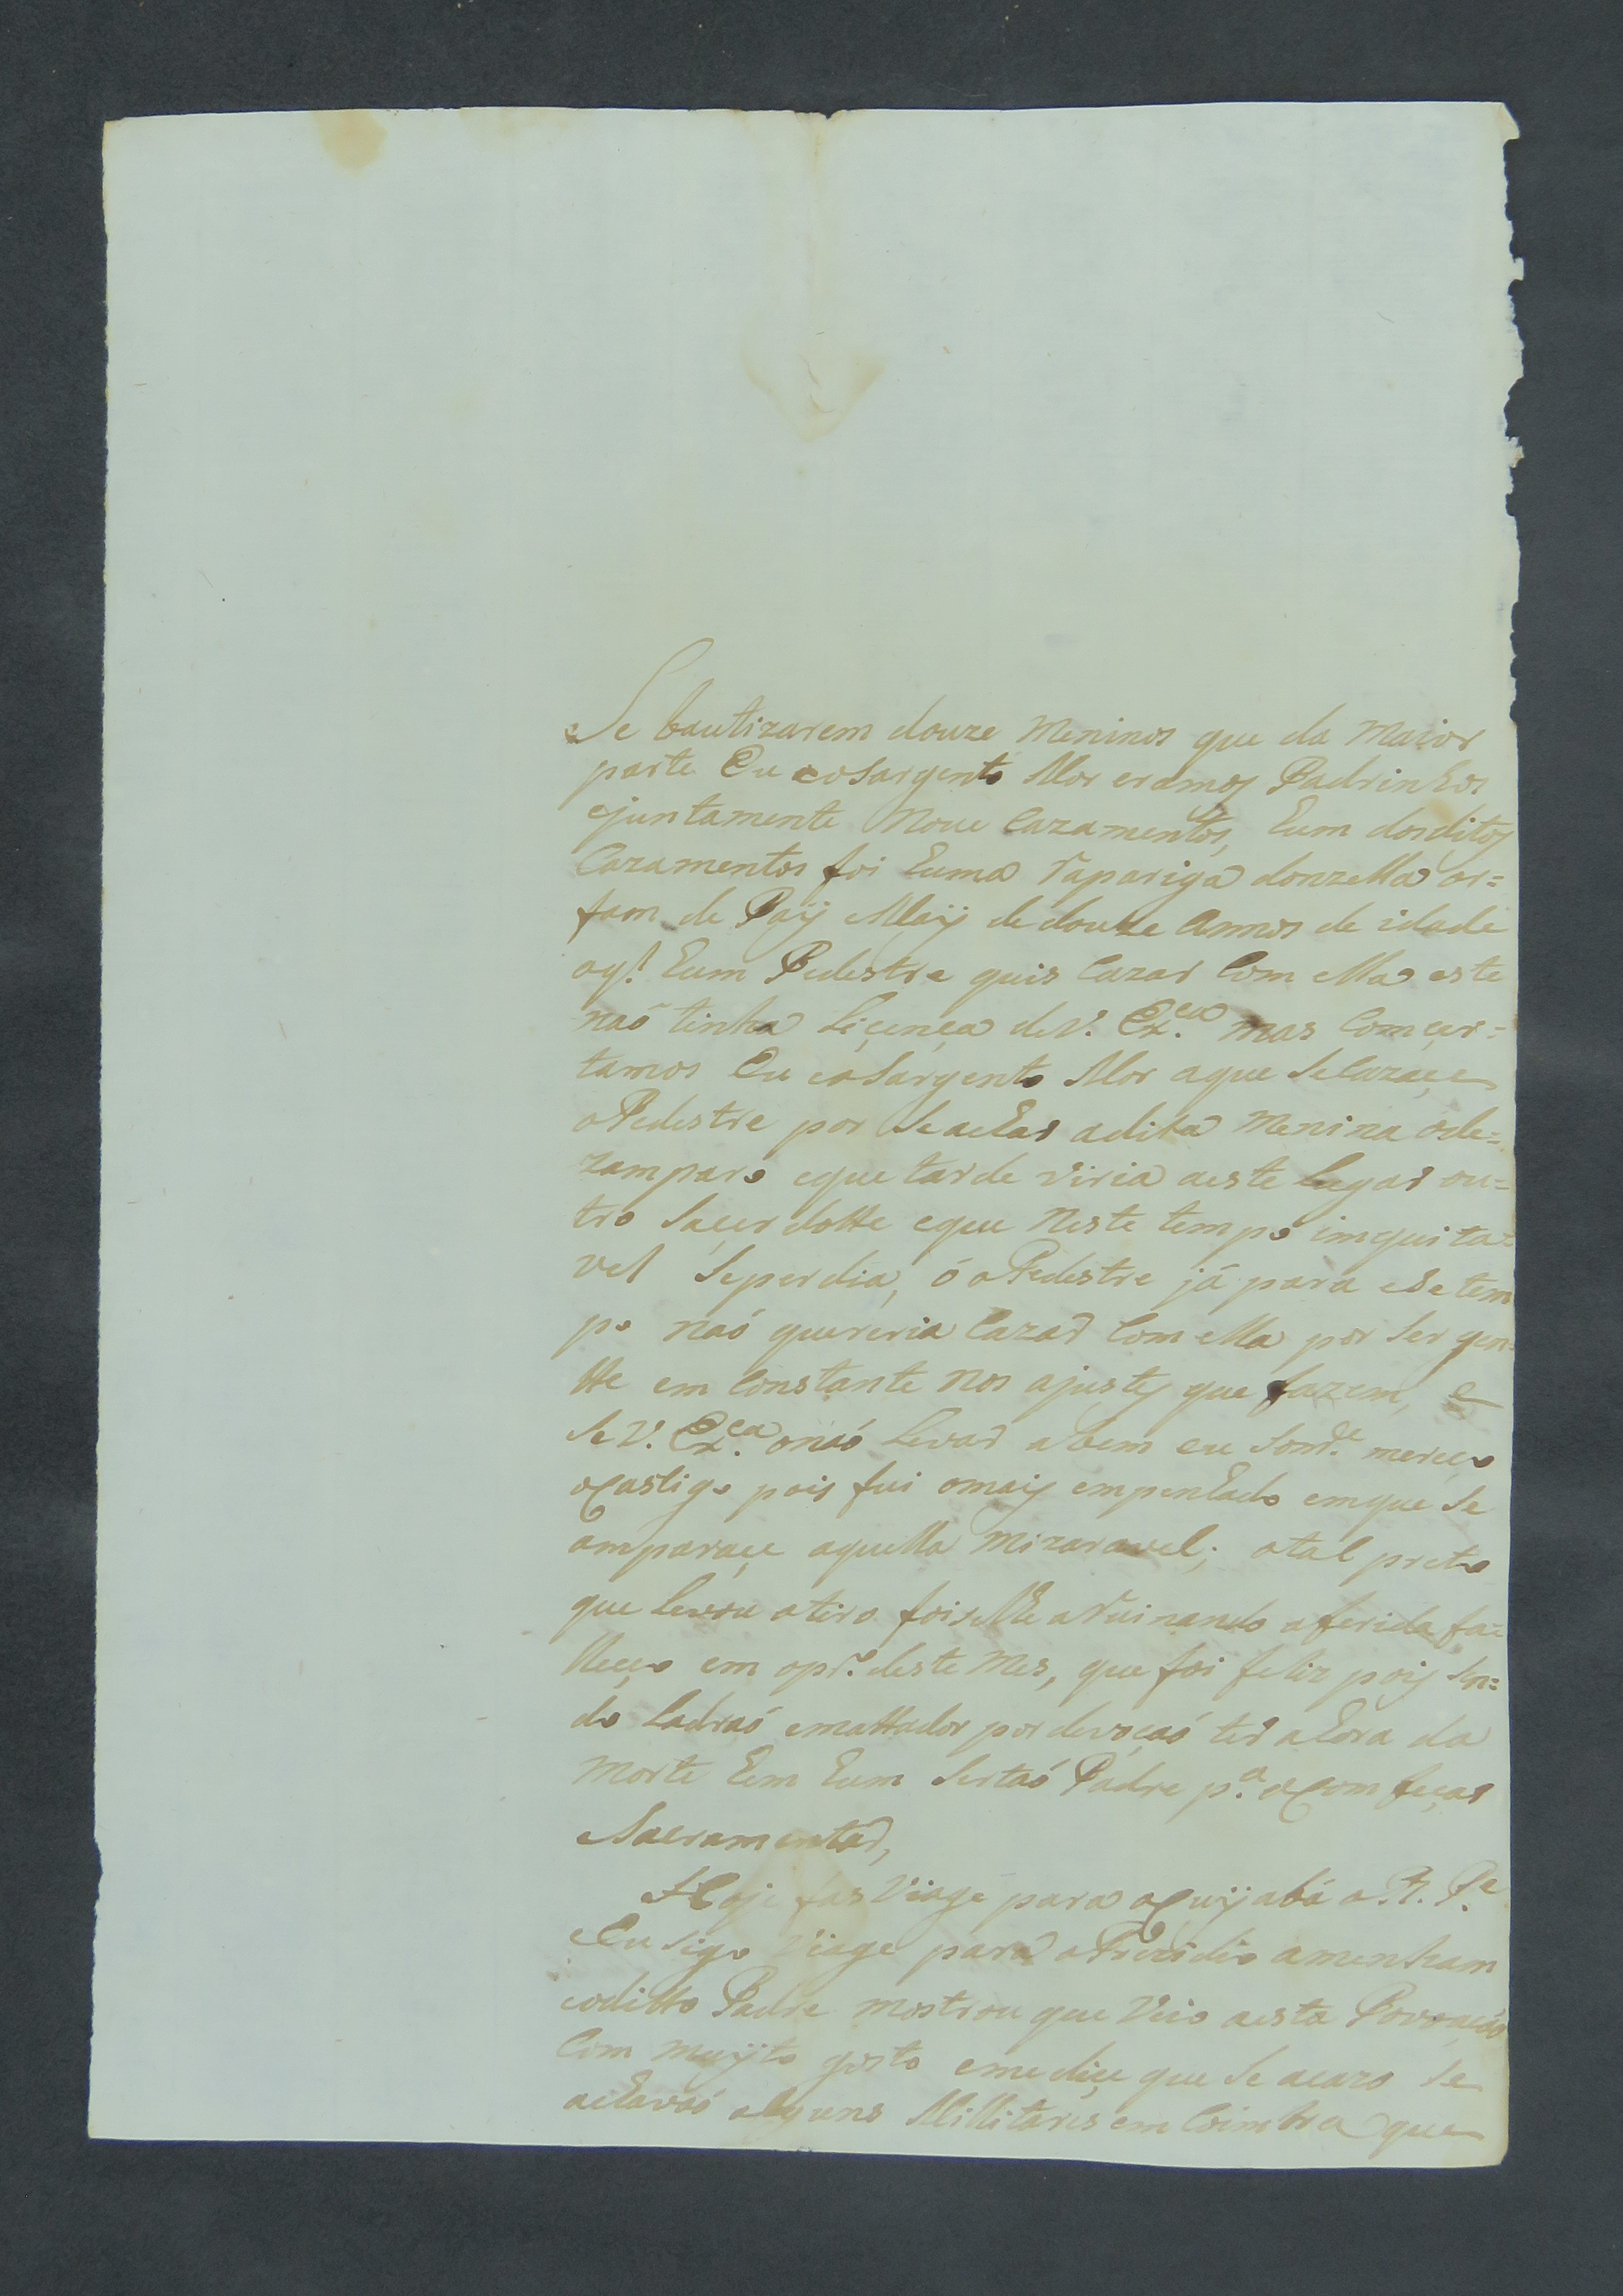 Se bautizarem douze Meninos que da Maior
parte Eu eoSargento Mor eramos Padrinhos
ejuntamente Nove Cazamentos, hum dosditos
Cazamentos foi huma rapariga donzella or=
fam de Paÿ Maÿ de douze Annos de idade
aql. hum Pedestre quis Cazar Com ella este
naó tinha Liçença deV. Ex.ca mas Comçer=
tamos Eu eoSargento Mor aque SeCazaçe
oPedestre por Seachar adita Menina ode=
zamparo eque tarde viria aeste lugar ou=
tro Saçerdotte eque Neste tempo imquita=
vel Seperdia, ó oPedestre já para ese tem
po naó quereria Cazar Com ella por Ser gen=
tte em Constante nos ajustes que fazem, e
Se V. Ex.ca onaó levar abem eu Som.e mereço
oCastigo pois fui omais empenhado emque Se
amparaçe aquella Mizaravel; otal preto
que levou otiro foiselhe aRuinando aferida fa=
lleçeo em opr.o deste Mes, que foi feliz pois Sen=
do Ladraó emattador por devoçaó ter ahora da
Morte hem hum Sertaó Padre p.a oComfeçar
eSacramentar,
Hoje fas Viage para oCuÿabá o R. P.e
eEu Sigo Viage para oPrezidio amenham
eoditto Padre mostrou que Veio aesta Povoaçaó
Com muÿto gosto emediçe que Se acazo Se
achavaó alguns Millitares em Coimbra que